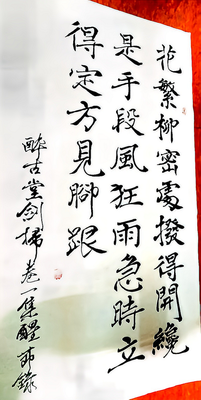 花繁柳密處撥得開纔
是手段風狂雨急時立
得定方見腳跟
醉古堂劍掃卷一集醒部錄